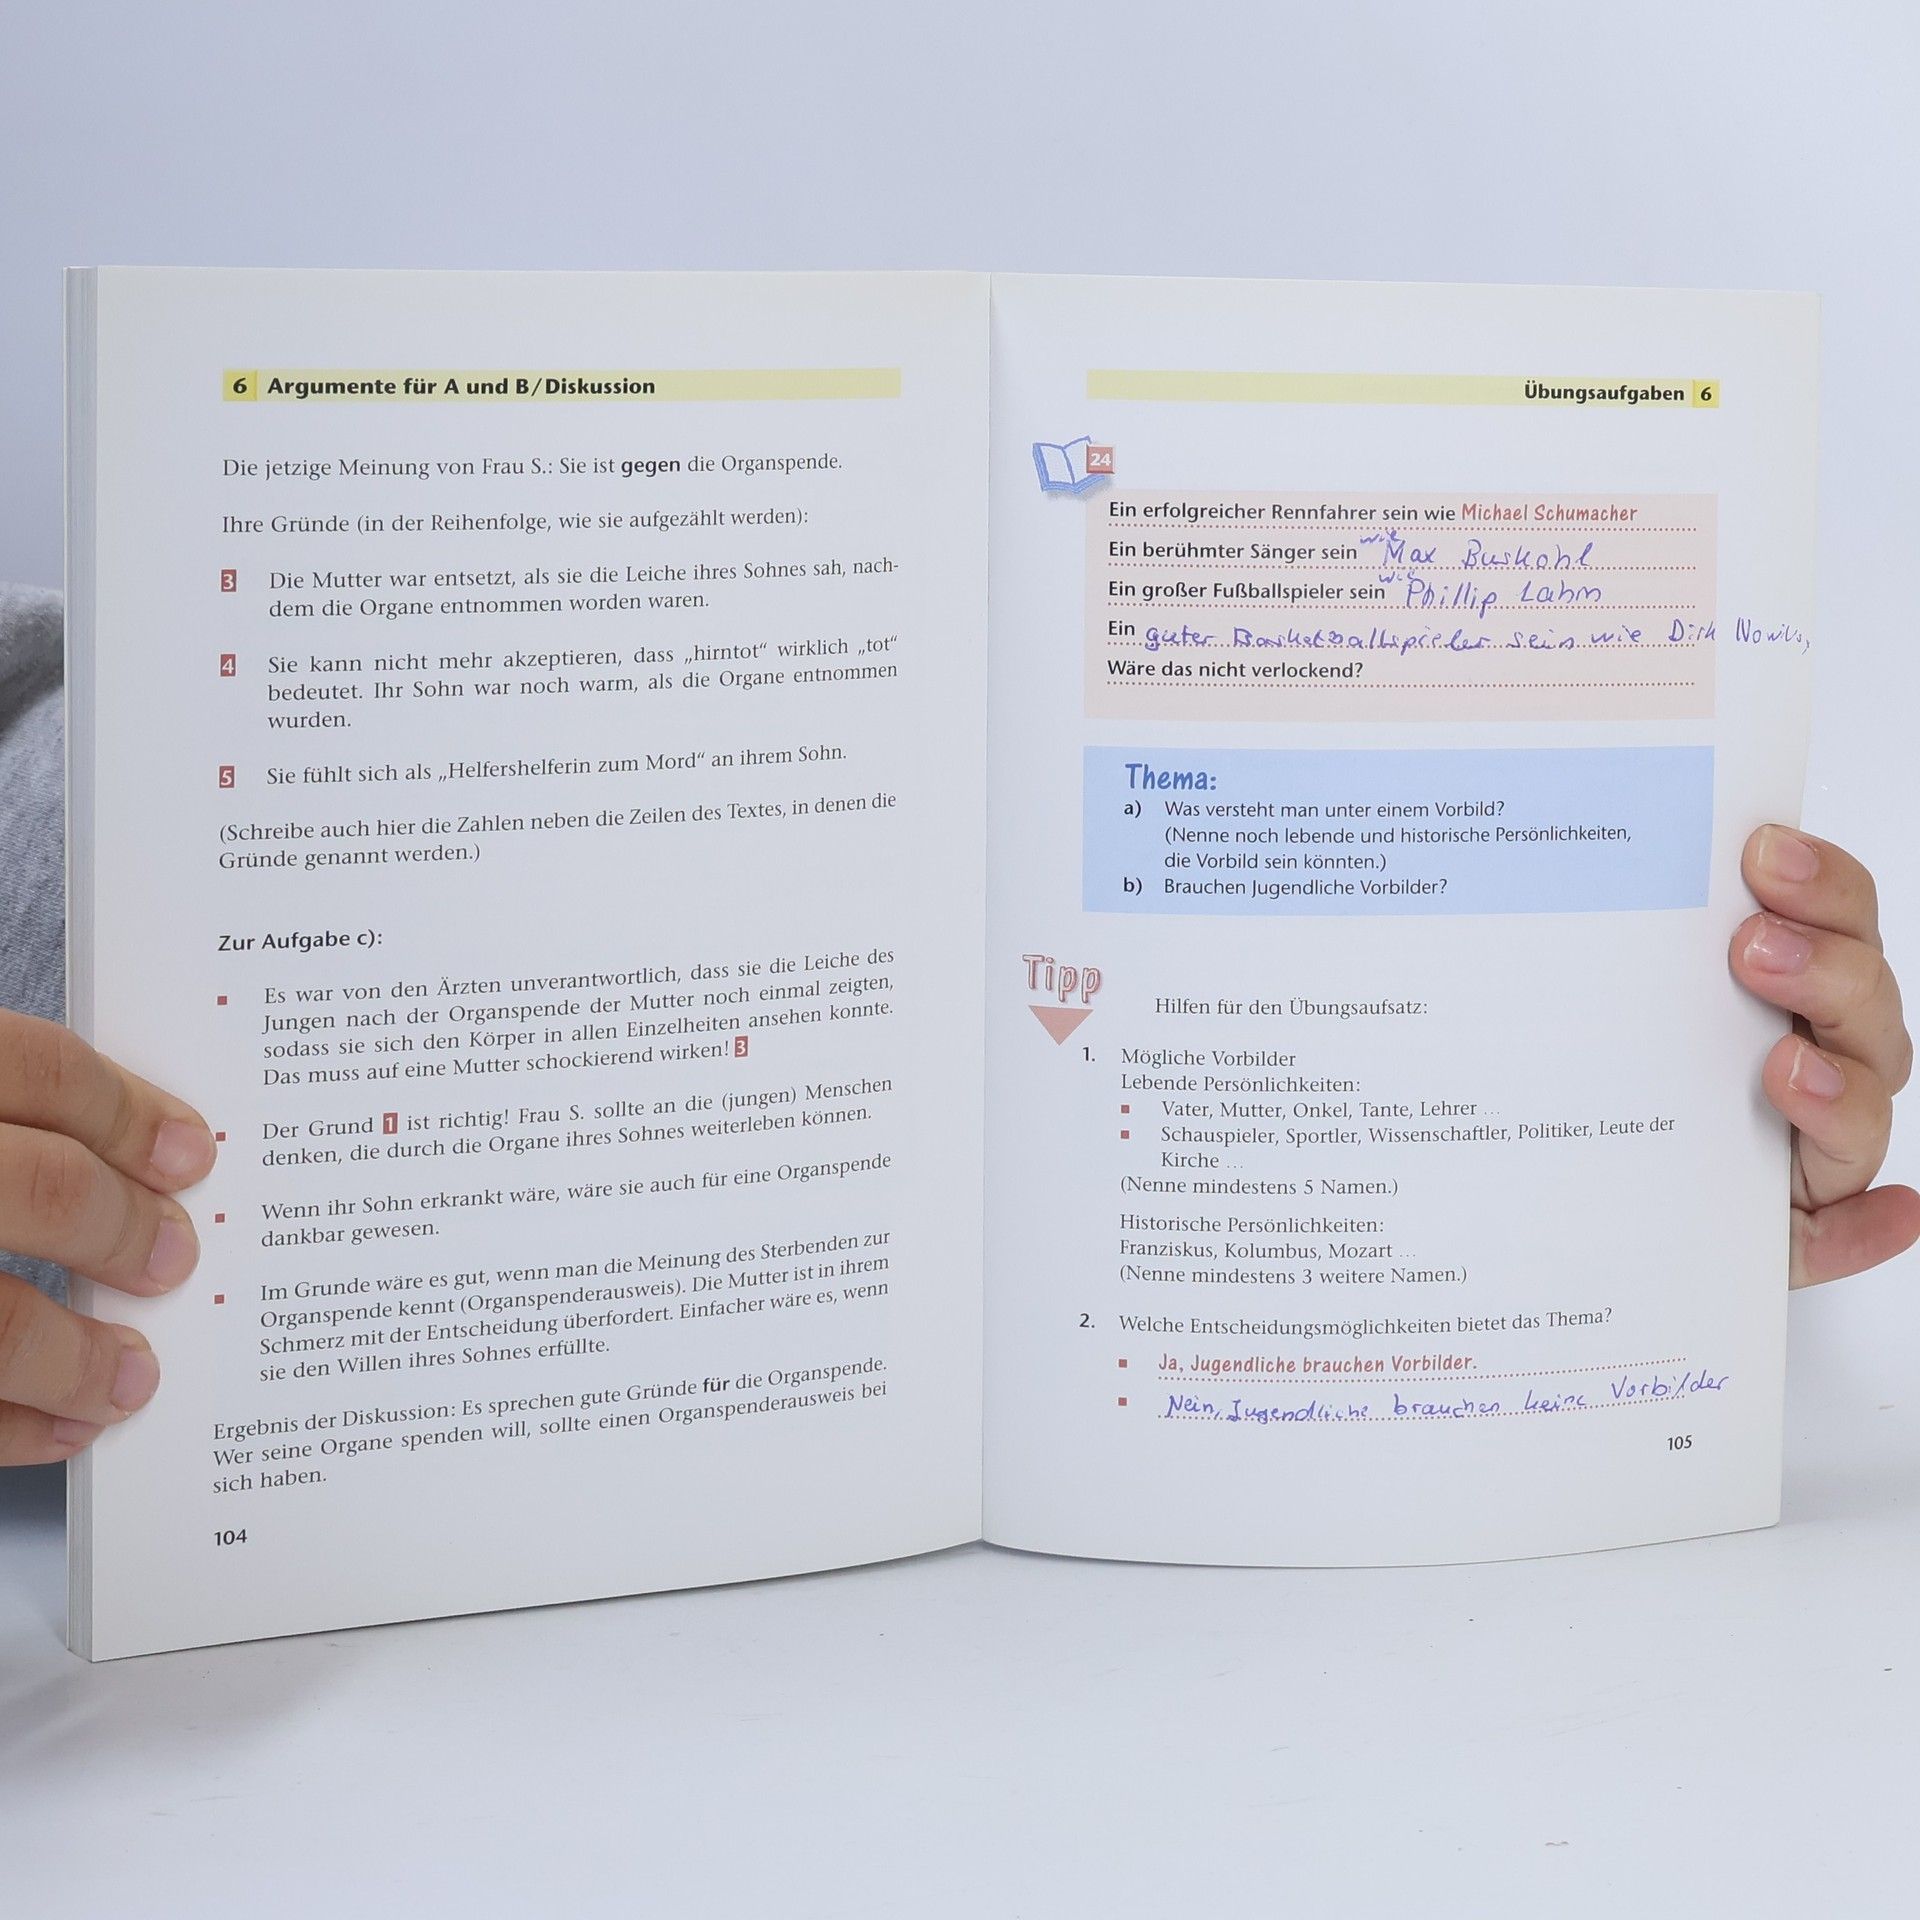 6 Argumente für A und B/Diskussion
Die jetzige Meinung von Frau S.: Sie ist gegen die Organspende.
Ihre Gründe (in der Reihenfolge, wie sie aufgezählt werden):
3 Die Mutter war entsetzt, als sie die Leiche ihres Sohnes sah, nach-
dem die Organe entnommen worden waren.
4 Sie kann nicht mehr akzeptieren, dass „hirntot“ wirklich „tot“
bedeutet. Ihr Sohn war noch warm, als die Organe entnommen
wurden.
5 Sie fühlt sich als „Helfershelferin zum Mord“ an ihrem Sohn.
(Schreibe auch hier die Zahlen neben die Zeilen des Textes, in denen die
Gründe genannt werden.)
Zur Aufgabe c):
Es war von den Ärzten unverantwortlich, dass sie die Leiche des
Jungen nach der Organspende der Mutter noch einmal zeigten,
sodass sie sich den Körper in allen Einzelheiten ansehen konnte.
Das muss auf eine Mutter schockierend wirken! 3
Der Grund 1 ist richtig! Frau S. sollte an die (jungen) Menschen
denken, die durch die Organe ihres Sohnes weiterleben können.
Wenn ihr Sohn erkrankt wäre, wäre sie auch für eine Organspende
dankbar gewesen.
Im Grunde wäre es gut, wenn man die Meinung des Sterbenden zur
Organspende kennt (Organspenderausweis). Die Mutter ist in ihrem
Schmerz mit der Entscheidung überfordert. Einfacher wäre es, wenn
sie den Willen ihres Sohnes erfüllte.
Ergebnis der Diskussion: Es sprechen gute Gründe für die Organspende.
Wer seine Organe spenden will, sollte einen Organspenderausweis bei
sich haben.
104
Übungsaufgaben 6
24
Ein erfolgreicher Rennfahrer sein wie Michael Schumacher
Ein berühmter Sänger sein wie Max Buskohl
Ein großer Fußballspieler sein wie Phillip Lahm
Ein guter Basketballspieler sein wie Dirk
Wäre das nicht verlockend?
Thema:
a) Was versteht man unter einem Vorbild?
(Nenne noch lebende und historische Persönlichkeiten,
die Vorbild sein könnten.)
b) Brauchen Jugendliche Vorbilder?
Tipp
Hilfen für den Übungsaufsatz:
1. Mögliche Vorbilder
Lebende Persönlichkeiten:
Vater, Mutter, Onkel, Tante, Lehrer ...
Schauspieler, Sportler, Wissenschaftler, Politiker, Leute der
Kirche ...
(Nenne mindestens 5 Namen.)
Historische Persönlichkeiten:
Franziskus, Kolumbus, Mozart ...
(Nenne mindestens 3 weitere Namen.)
2. Welche Entscheidungsmöglichkeiten bietet das Thema?
Ja, Jugendliche brauchen Vorbilder.
Nein, Jugendliche brauchen keine Vorbilder
105